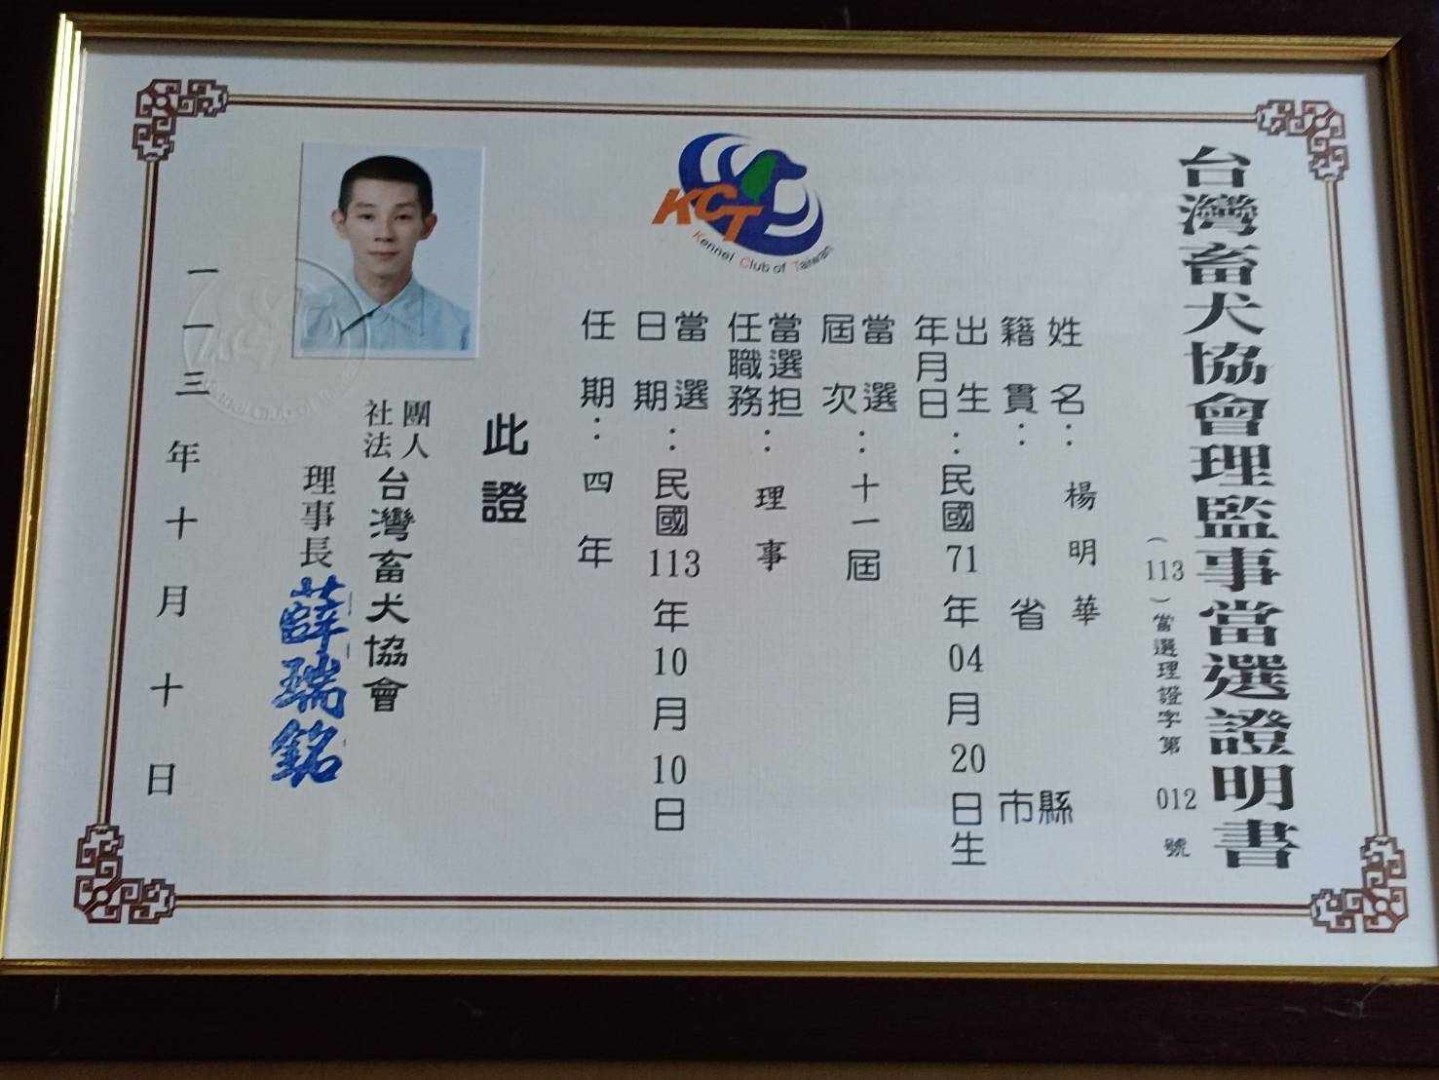 台灣畜犬協會理監事當選證明書
（113）當選理證字第 012 號
姓名：楊明華
籍貫： 省 縣市
出生年月日：民國71年04月20日生
當選屆次：十一屆
當選担任職務：理事
當選日期：民國113年10月10日
任期：四年
此證
社團法人台灣畜犬協會
理事長 薛瑞銘
一一三年十月十日
KCT
Kennel Club of Taiwan